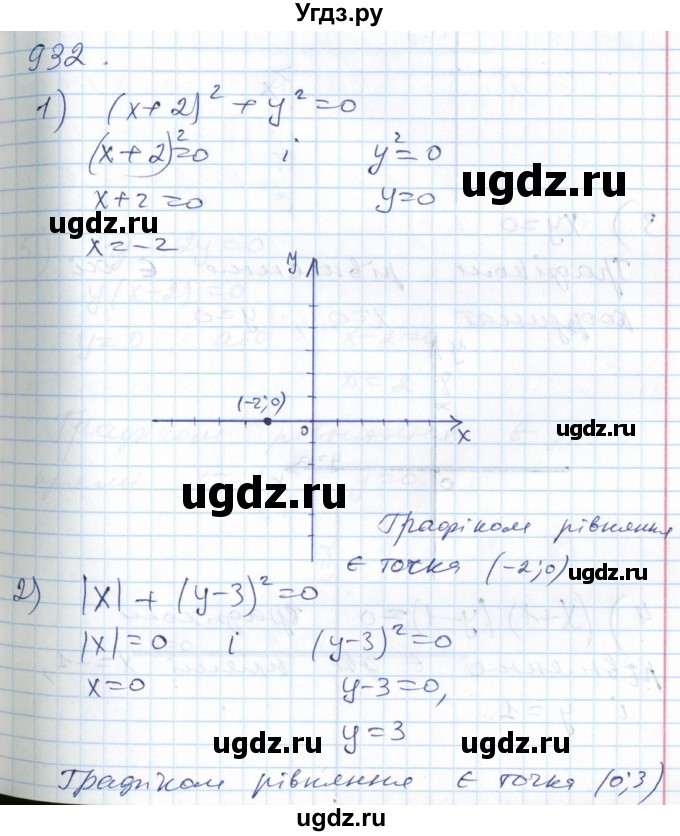 Угдз.ру
932.
1) (x+2)² + y² = 0
(x+2)² = 0 і y² = 0
x+2 = 0 y = 0
ugdz.ru
ugdz.ru
x = -2
y
(-2;0)
0 x
ugdz.ru
Графіком рівняння
є точка (-2;0)
ugdz.ru
2) |x| + (y-3)² = 0
|x| = 0 і (y-3)² = 0
x = 0 y-3 = 0,
ugdz.ru
ugdz.ru
y = 3
Графіком рівняння є точка (0;3)
ugdz.ru